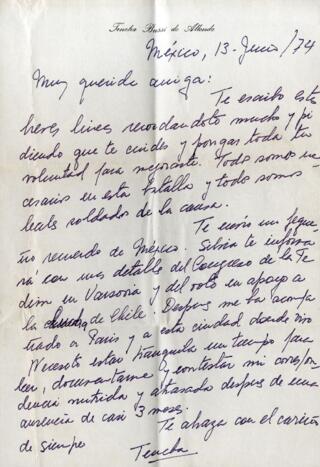 Tencha Bussi de Allende
México, 13-Junio/74
Muy querida amiga:
Te escribo estas
breves lineas recordandote mucho y pi
diendo que te cuides y pongas toda tu
voluntad para mejorarte. Todos somos ne
cesarios en esta batalla y todos somos
leales soldados de la causa.
Te envío un peque
ño recuerdo de México. Silvia te informa
rá con mas detalle del Congreso de la Fe
dim en Varsovia y del voto en apoyo a
la de Chile. Despues me ha acompa
ñado a Paris y a esta ciudad donde vivo
Necesito estar tranquila un tiempo para
leer, documentarme y contestar mi correspon
dencia nutrida y atrasada despues de una
ausencia de casi 3 meses.
Te abraza con el cariño
de siempre
Tencha